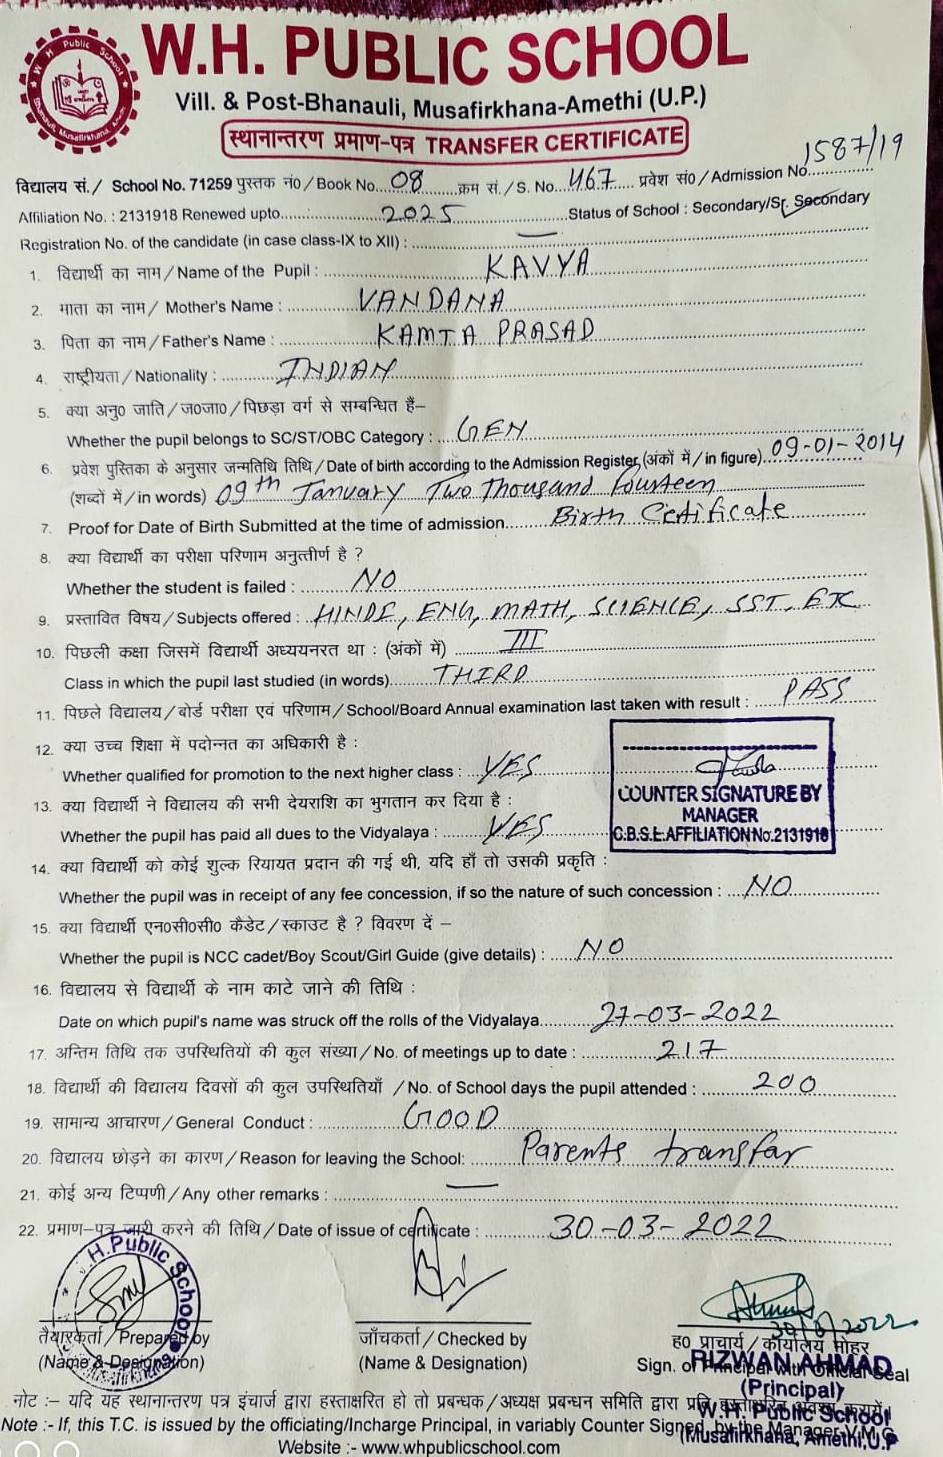 W.H. PUBLIC SCHOOL
Vill. & Post-Bhanauli, Musafirkhana-Amethi (U.P.)
स्थानान्तरण प्रमाण-पत्र TRANSFER CERTIFICATE
विद्यालय सं./ School No. 71259 पुस्तक नं0/Book No. 08 क्रम सं./S. No. 467 प्रवेश सं0/Admission No. 1587/19
Affiliation No. : 2131918 Renewed upto. 2025 Status of School : Secondary/Sr. Secondary
Registration No. of the candidate (in case class-IX to XII) : —
1. विद्यार्थी का नाम/Name of the Pupil : KAVYA
2. माता का नाम/ Mother's Name : VANDANA
3. पिता का नाम/Father's Name : KAMTA PRASAD
4. राष्ट्रीयता/Nationality : INDIAN
5. क्या अनु0 जाति/ज0जा0/पिछड़ा वर्ग से सम्बन्धित हैं–
Whether the pupil belongs to SC/ST/OBC Category : GEN
6. प्रवेश पुस्तिका के अनुसार जन्मतिथि तिथि/Date of birth according to the Admission Register (अंकों में/in figure) 09-01-2014
(शब्दों में/in words) 09th January Two Thousand Fourteen
7. Proof for Date of Birth Submitted at the time of admission Birth Certificate
8. क्या विद्यार्थी का परीक्षा परिणाम अनुत्तीर्ण है ?
Whether the student is failed : NO
9. प्रस्तावित विषय/Subjects offered : HINDI, ENG, MATH, SCIENCE, SST, ETC
10. पिछली कक्षा जिसमें विद्यार्थी अध्ययनरत था : (अंकों में) III
Class in which the pupil last studied (in words) THIRD
11. पिछले विद्यालय/बोर्ड परीक्षा एवं परिणाम/School/Board Annual examination last taken with result : PASS
12. क्या उच्च शिक्षा में पदोन्नत का अधिकारी है :
Whether qualified for promotion to the next higher class : YES
COUNTER SIGNATURE BY
MANAGER
C.B.S.E. AFFILIATION No. 2131918
13. क्या विद्यार्थी ने विद्यालय की सभी देयराशि का भुगतान कर दिया है :
Whether the pupil has paid all dues to the Vidyalaya : YES
14. क्या विद्यार्थी को कोई शुल्क रियायत प्रदान की गई थी, यदि हाँ तो उसकी प्रकृति :
Whether the pupil was in receipt of any fee concession, if so the nature of such concession : NO
15. क्या विद्यार्थी एन0सी0सी0 कैडेट/स्काउट है ? विवरण दें –
Whether the pupil is NCC cadet/Boy Scout/Girl Guide (give details) : NO
16. विद्यालय से विद्यार्थी के नाम काटे जाने की तिथि :
Date on which pupil's name was struck off the rolls of the Vidyalaya 27-03-2022
17. अन्तिम तिथि तक उपस्थितियों की कुल संख्या/No. of meetings up to date : 217
18. विद्यार्थी की विद्यालय दिवसों की कुल उपस्थितियाँ /No. of School days the pupil attended : 200
19. सामान्य आचारण/General Conduct : GOOD
20. विद्यालय छोड़ने का कारण/Reason for leaving the School: Parents transfar
21. कोई अन्य टिप्पणी/Any other remarks : —
22. प्रमाण-पत्र जारी करने की तिथि/Date of issue of certificate : 30-03-2022
H. Public School
तैयारकर्ता/Prepared by
(Name & Designation)
जाँचकर्ता/Checked by
(Name & Designation)
ह0 प्राचार्य/कार्यालय मोहर
Sign. of Principal with Official Seal
RIZWAN AHMAD
(Principal)
W.H. Public School
Musafirkhana, Amethi, U.P
नोट :– यदि यह स्थानान्तरण पत्र इंचार्ज द्वारा हस्ताक्षरित हो तो प्रबन्धक/अध्यक्ष प्रबन्धन समिति द्वारा प्रति हस्ताक्षरित अवश्य करायें।
Note :- If, this T.C. is issued by the officiating/Incharge Principal, in variably Counter Signed, by the Manager V.M.C.
Website :- www.whpublicschool.com